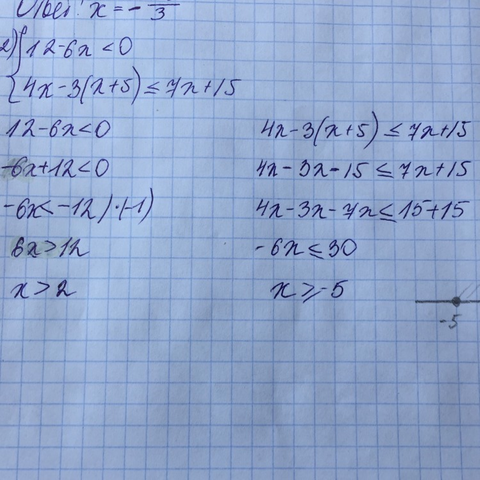 Ответ: x = - /3
2) { 12-6x<0
{ 4x-3(x+5) ≤ 7x+15
12-6x<0
-6x+12<0
-6x<-12 | ·(-1)
6x>12
x>2
4x-3(x+5) ≤ 7x+15
4x-3x-15 ≤ 7x+15
4x-3x-7x ≤ 15+15
-6x ≤ 30
x ≥ -5
-5